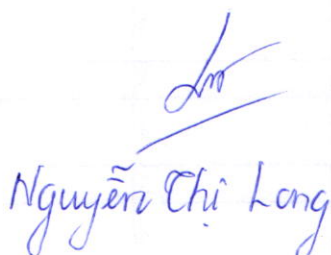 Nguyễn Thị Long